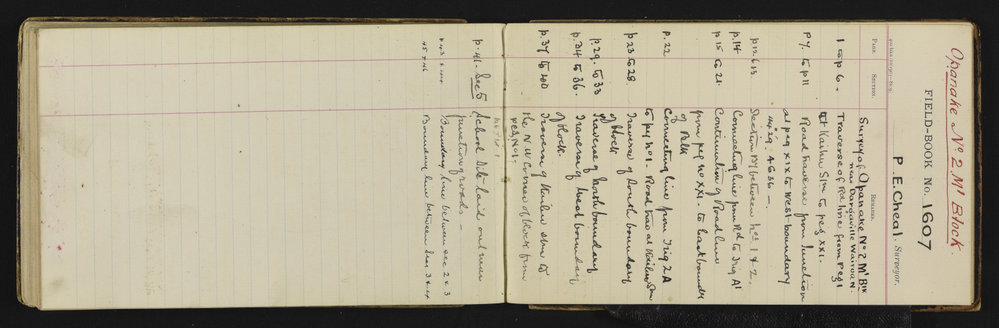 Opanake No 2 M1 Block.
FIELD-BOOK No. 1607
P. E. Cheal, Surveyor.
PAGE. SECTION. REMARKS.
Survey of Opanake No 2 M1 Blk
near Dargaville Wairoa N.
1 to p 6. Traverse of Rd line from peg 1
at Kaihu Stn to peg XXI.
p 7. to p 11 Road traverse from Junction
at peg XIX to West boundary
p 12 & 13 Section Bdy between Nos 1 & 2.
p. 14. Connecting line from Rd to Trig A1
p 15 to 21. Continuation of Road line
from peg No XXI. to East boundary
of Blk
p. 22 Connecting line from Trig 2A
to peg No 1. Road trav at Kaihu Stm
p 23 to 28 Traverse of South boundary
of Block
p. 29. to 33 Traverse of North boundary
p. 34 to 36. Traverse of West boundary
of Block.
p. 37 to 40 Traverse of Kaihu stm to
the N W Corner of Block from
peg No 1.
p. 41. Sec 5 School Site laid out near
junction of roads —
p. 43 & Boundary line between sec 2 & 3
45 & 46 Boundary line between Secs 3 &